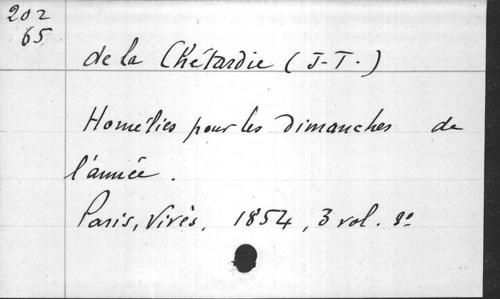 202
65
de la Chétardie (J-T.)
Homélies pour les Dimanches de
l'année.
Paris, Vivès, 1854, 3 vol. 8º